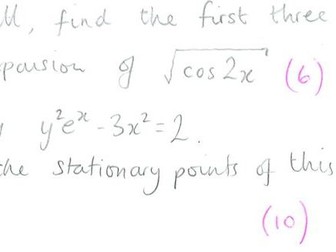 M, find the first three
pansion of √cos2x (6)
y²eˣ - 3x² = 2.
the stationary points of this
(10)